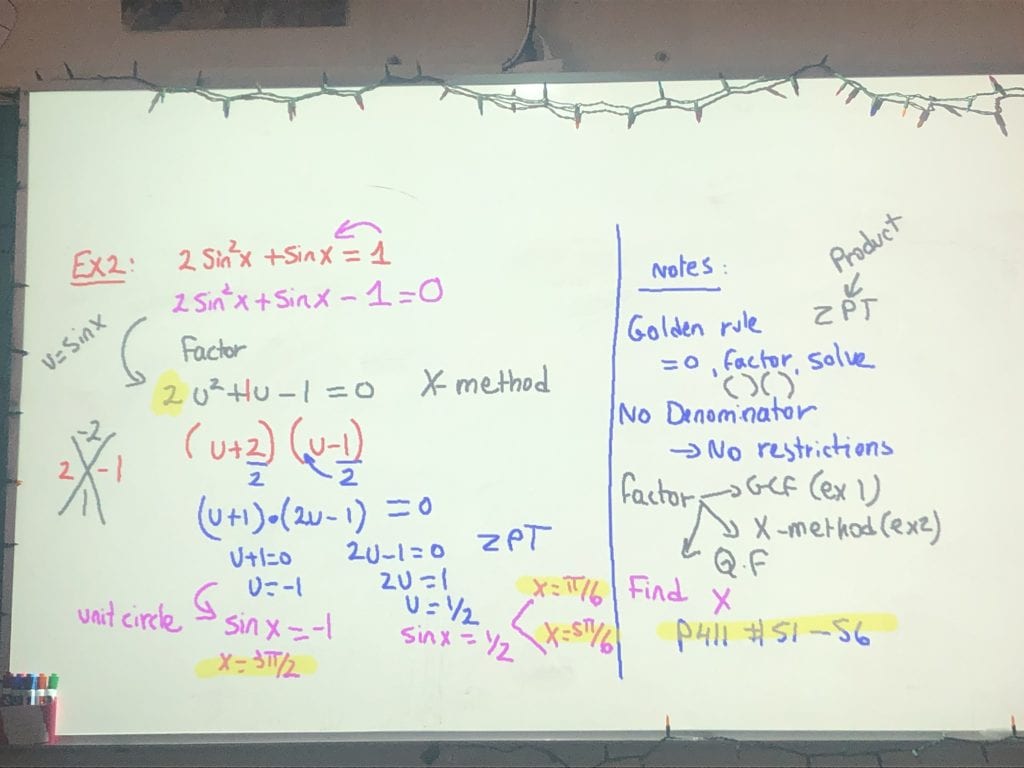 Ex2: 2 Sin²x + Sin x = 1
2 Sin²x + Sin x - 1 = 0
U = Sin x
Factor
2U² + 1U - 1 = 0 X-method
-2
2 -1
1
(U + 2/2) (U - 1/2)
(U+1)•(2U-1) = 0
U+1=0 2U-1=0 ZPT
U=-1 2U=1
U=1/2
unit circle Sin x = -1
x = 3π/2
Sin x = 1/2
x = π/6
x = 5π/6
Notes:
Product
ZPT
Golden rule
=0, factor, solve
( )( )
No Denominator
→ No restrictions
factor → GCF (ex 1)
X-method (ex2)
Q.F
Find X
P411 #51-56